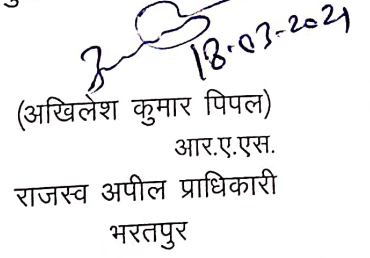 18-03-2021
(अखिलेश कुमार पिपल)
आर.ए.एस.
राजस्व अपील प्राधिकारी
भरतपुर